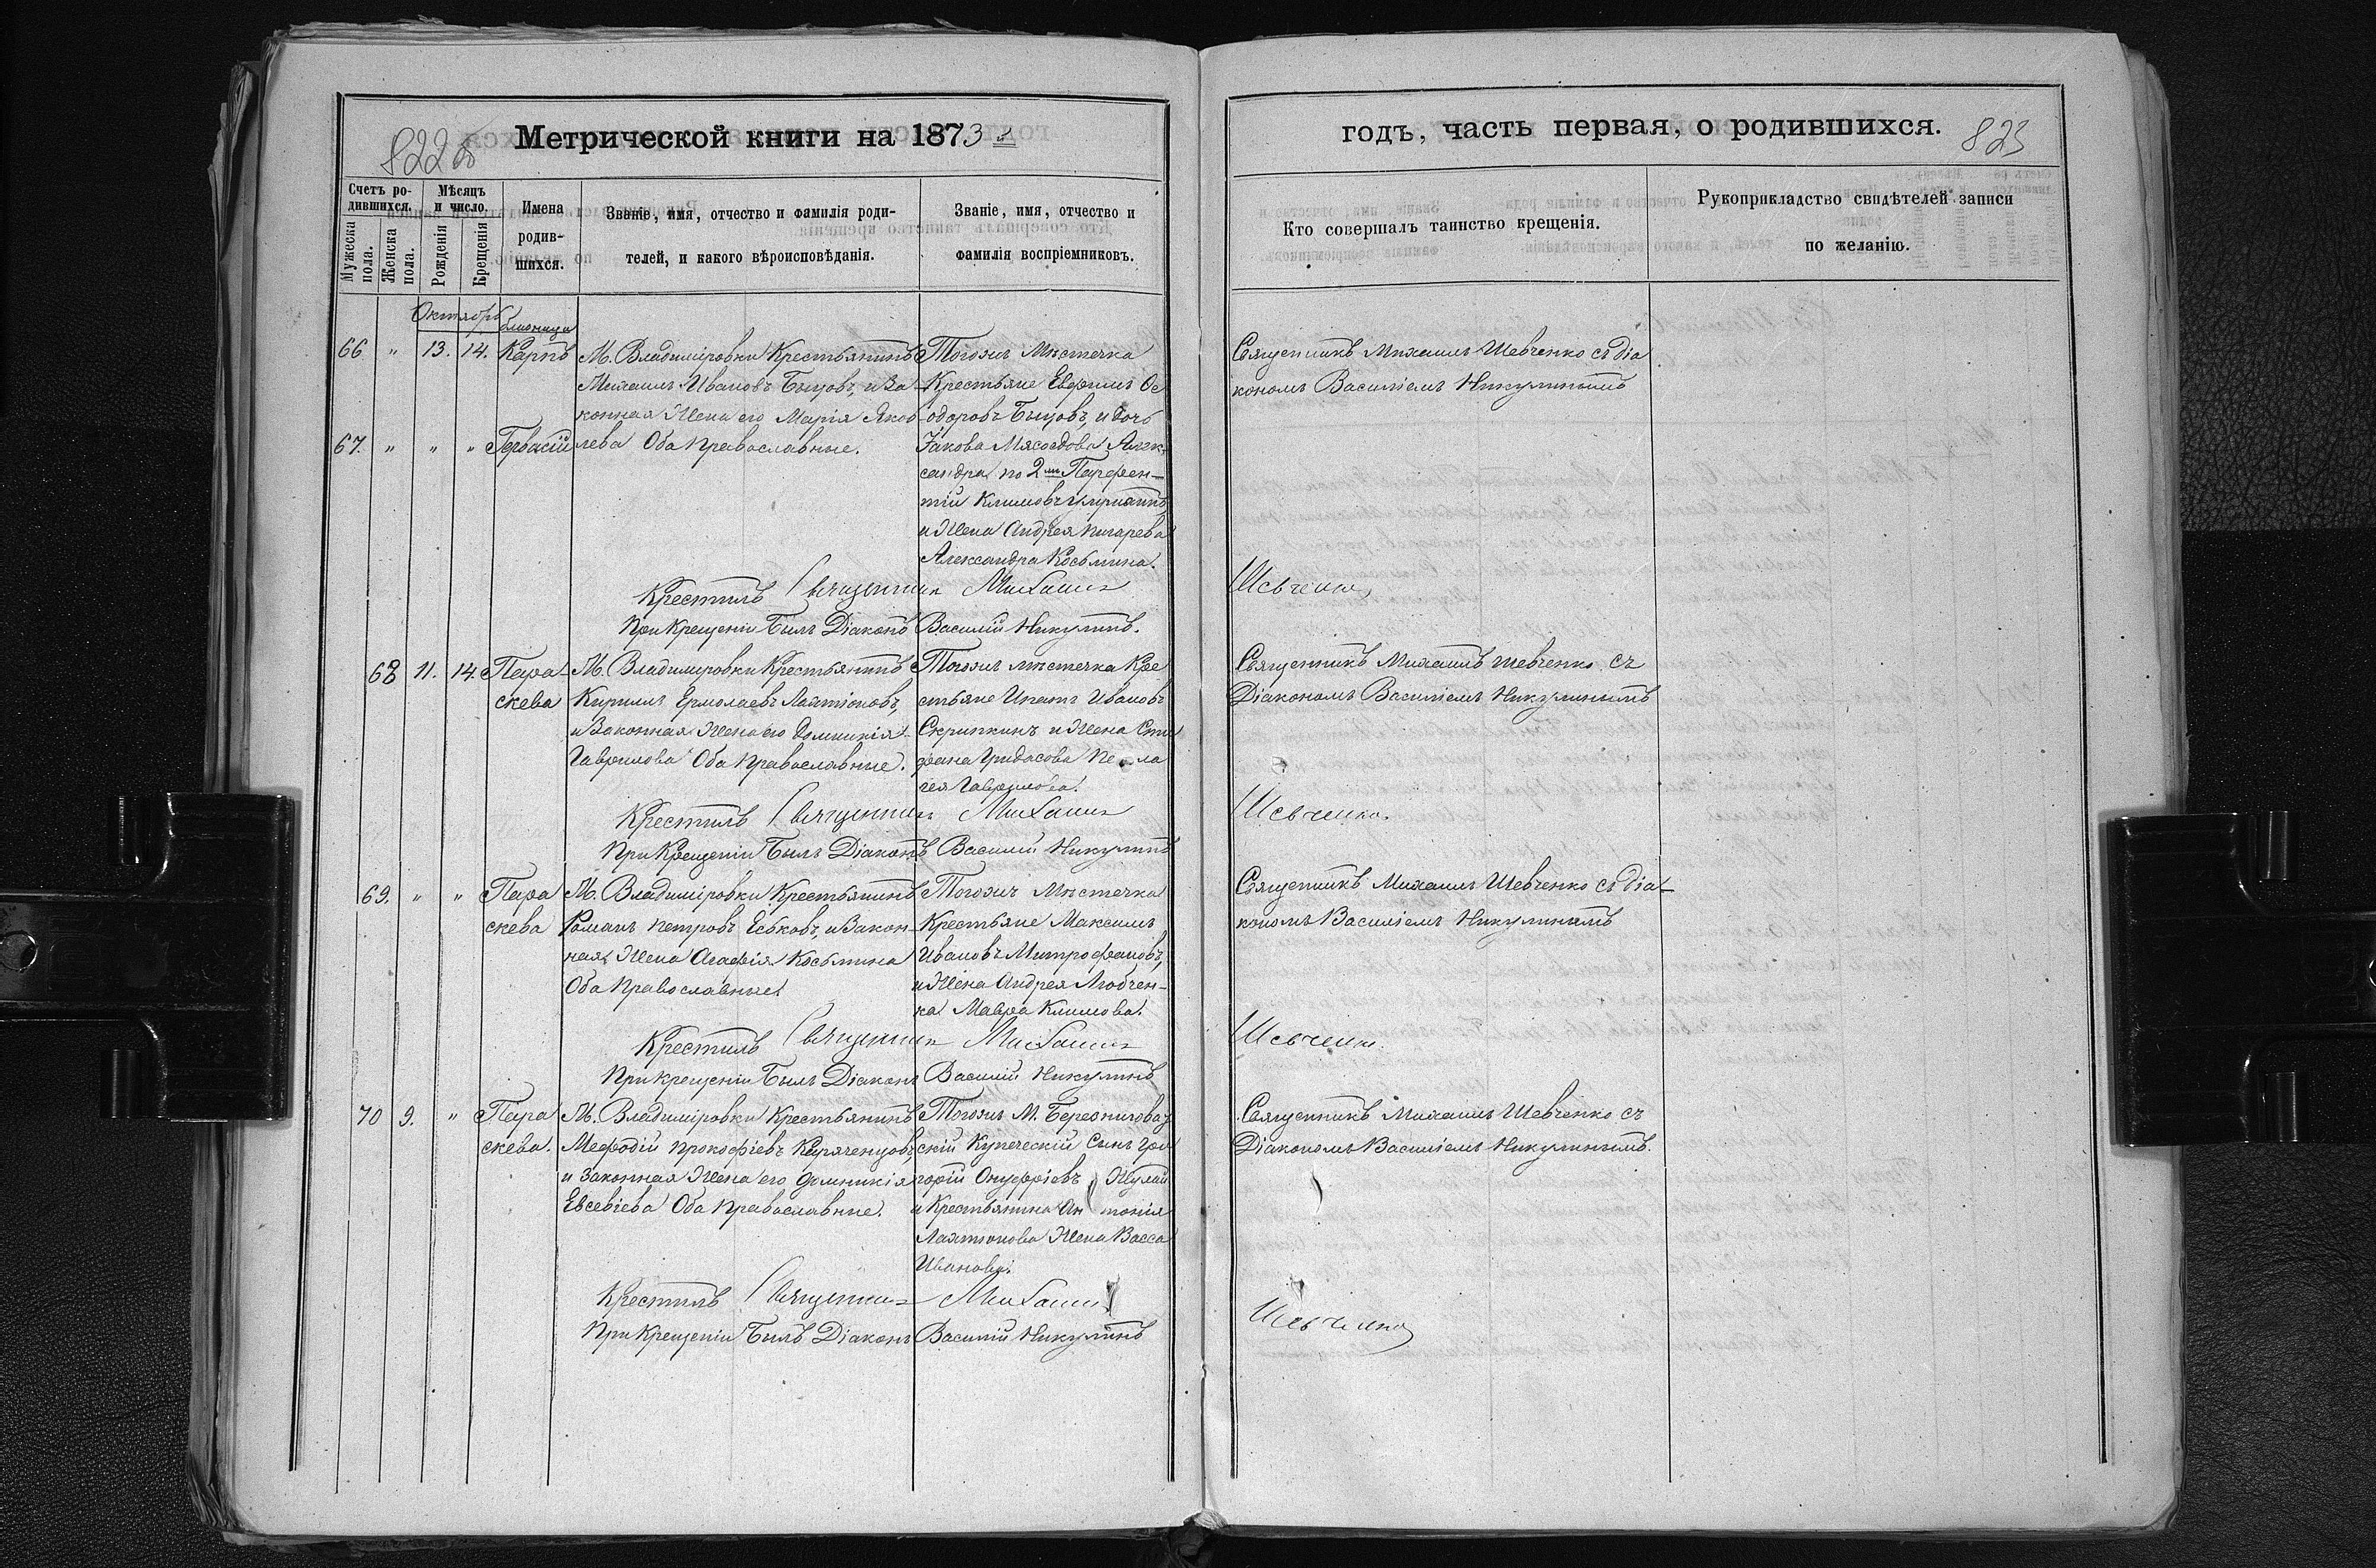 822 об
Метрической книги на 1873 й
годъ, часть первая, о родившихся.
823
Счетъ ро-
дившихся.
Мѣсяцъ
и число.
Мужеска
пола.
Женска
пола.
Рожденія
Крещенія
Имена
родив-
шихся.
Званіе, имя, отчество и фамилія роди-
телей, и какого вѣроисповѣданія.
Званіе, имя, отчество и
фамилія воспріемниковъ.
Кто совершалъ таинство крещенія.
Рукоприкладство свидѣтелей записи
по желанію.
Октябрь
близнецы
66 " 13. 14. Карпъ
М. Владиміровки Крестьянинъ
Михаилъ Ивановъ Бъщовъ, и За-
конная Жена его Марія Яков-
67. " " " Гервасій
лева Оба Православные.
Тогожъ Мѣстечка
Крестьяне Евфимъ Ѳе
одоровъ Бъщовъ, и дочь
Іакова Мясоедова Алек-
сандра, по 2мъ Парфен-
тій Климовъ
и Жена Андрея Пигарева
Александра Косьмина.
Священникъ Михаилъ Шевченко съ діа
кономъ Василіемъ Никулинымъ
Крестилъ Священник Михаилъ Шевченко,
При Крещеніи Былъ Діаконъ Василій Никулинъ.
68 11. 14. Пара-
скева
М. Владиміровки Крестьянинъ
Кириллъ Ермолаевъ Лактіоновъ,
и Законная Жена его Домникія
Гаврилова Оба Православные.
Тогожъ мѣстечка Кре
стьяне Ипатъ Ивановъ
Скрипкинъ и Жена Сте
фана Гридасова Пе ла
гея Гаврилова.
Священникъ Михаилъ Шевченко съ
Діакономъ Василіемъ Никулинымъ
Крестилъ Священник Михаилъ Шевченко.
При Крещеніи Былъ Діаконъ Василій Никулинъ
69. " " Пара
скева
М. Владиміровки Крестьянинъ
Романъ Петровъ Еськовъ, и Закон-
ная Жена Агафія Косьмина
Оба Православные.
Тогожъ Мѣстечка
Крестьяне Максимъ
Ивановъ Митрофановъ,
и Жена Андрея Любчен-
ка Мавра Климова.
Священникъ Михаилъ Шевченко съ діа-
кономъ Василіемъ Никулинымъ
Крестилъ Священник Михаилъ Шевченко.
При Крещеніи Былъ Діаконъ Василій Никулинъ
70 9. " Пара
скева.
М. Владиміровки Крестьянинъ
Мефодій Прокофіевъ Каряченцовъ,
и Законная Жена его Домникія
Евсевіева Оба Православные.
Тогожъ М. Березниговат
скій Купеческій Сынъ Гри
горій Онуфріевъ
и Крестьянина Ан тонія
Лактіонова Жена Васса
Иванова.
Священникъ Михаилъ Шевченко съ
Діакономъ Василіемъ Никулинымъ.
Крестилъ Священник Михаилъ Шевченко
При Крещеніи Былъ Діаконъ Василій Никулинъ